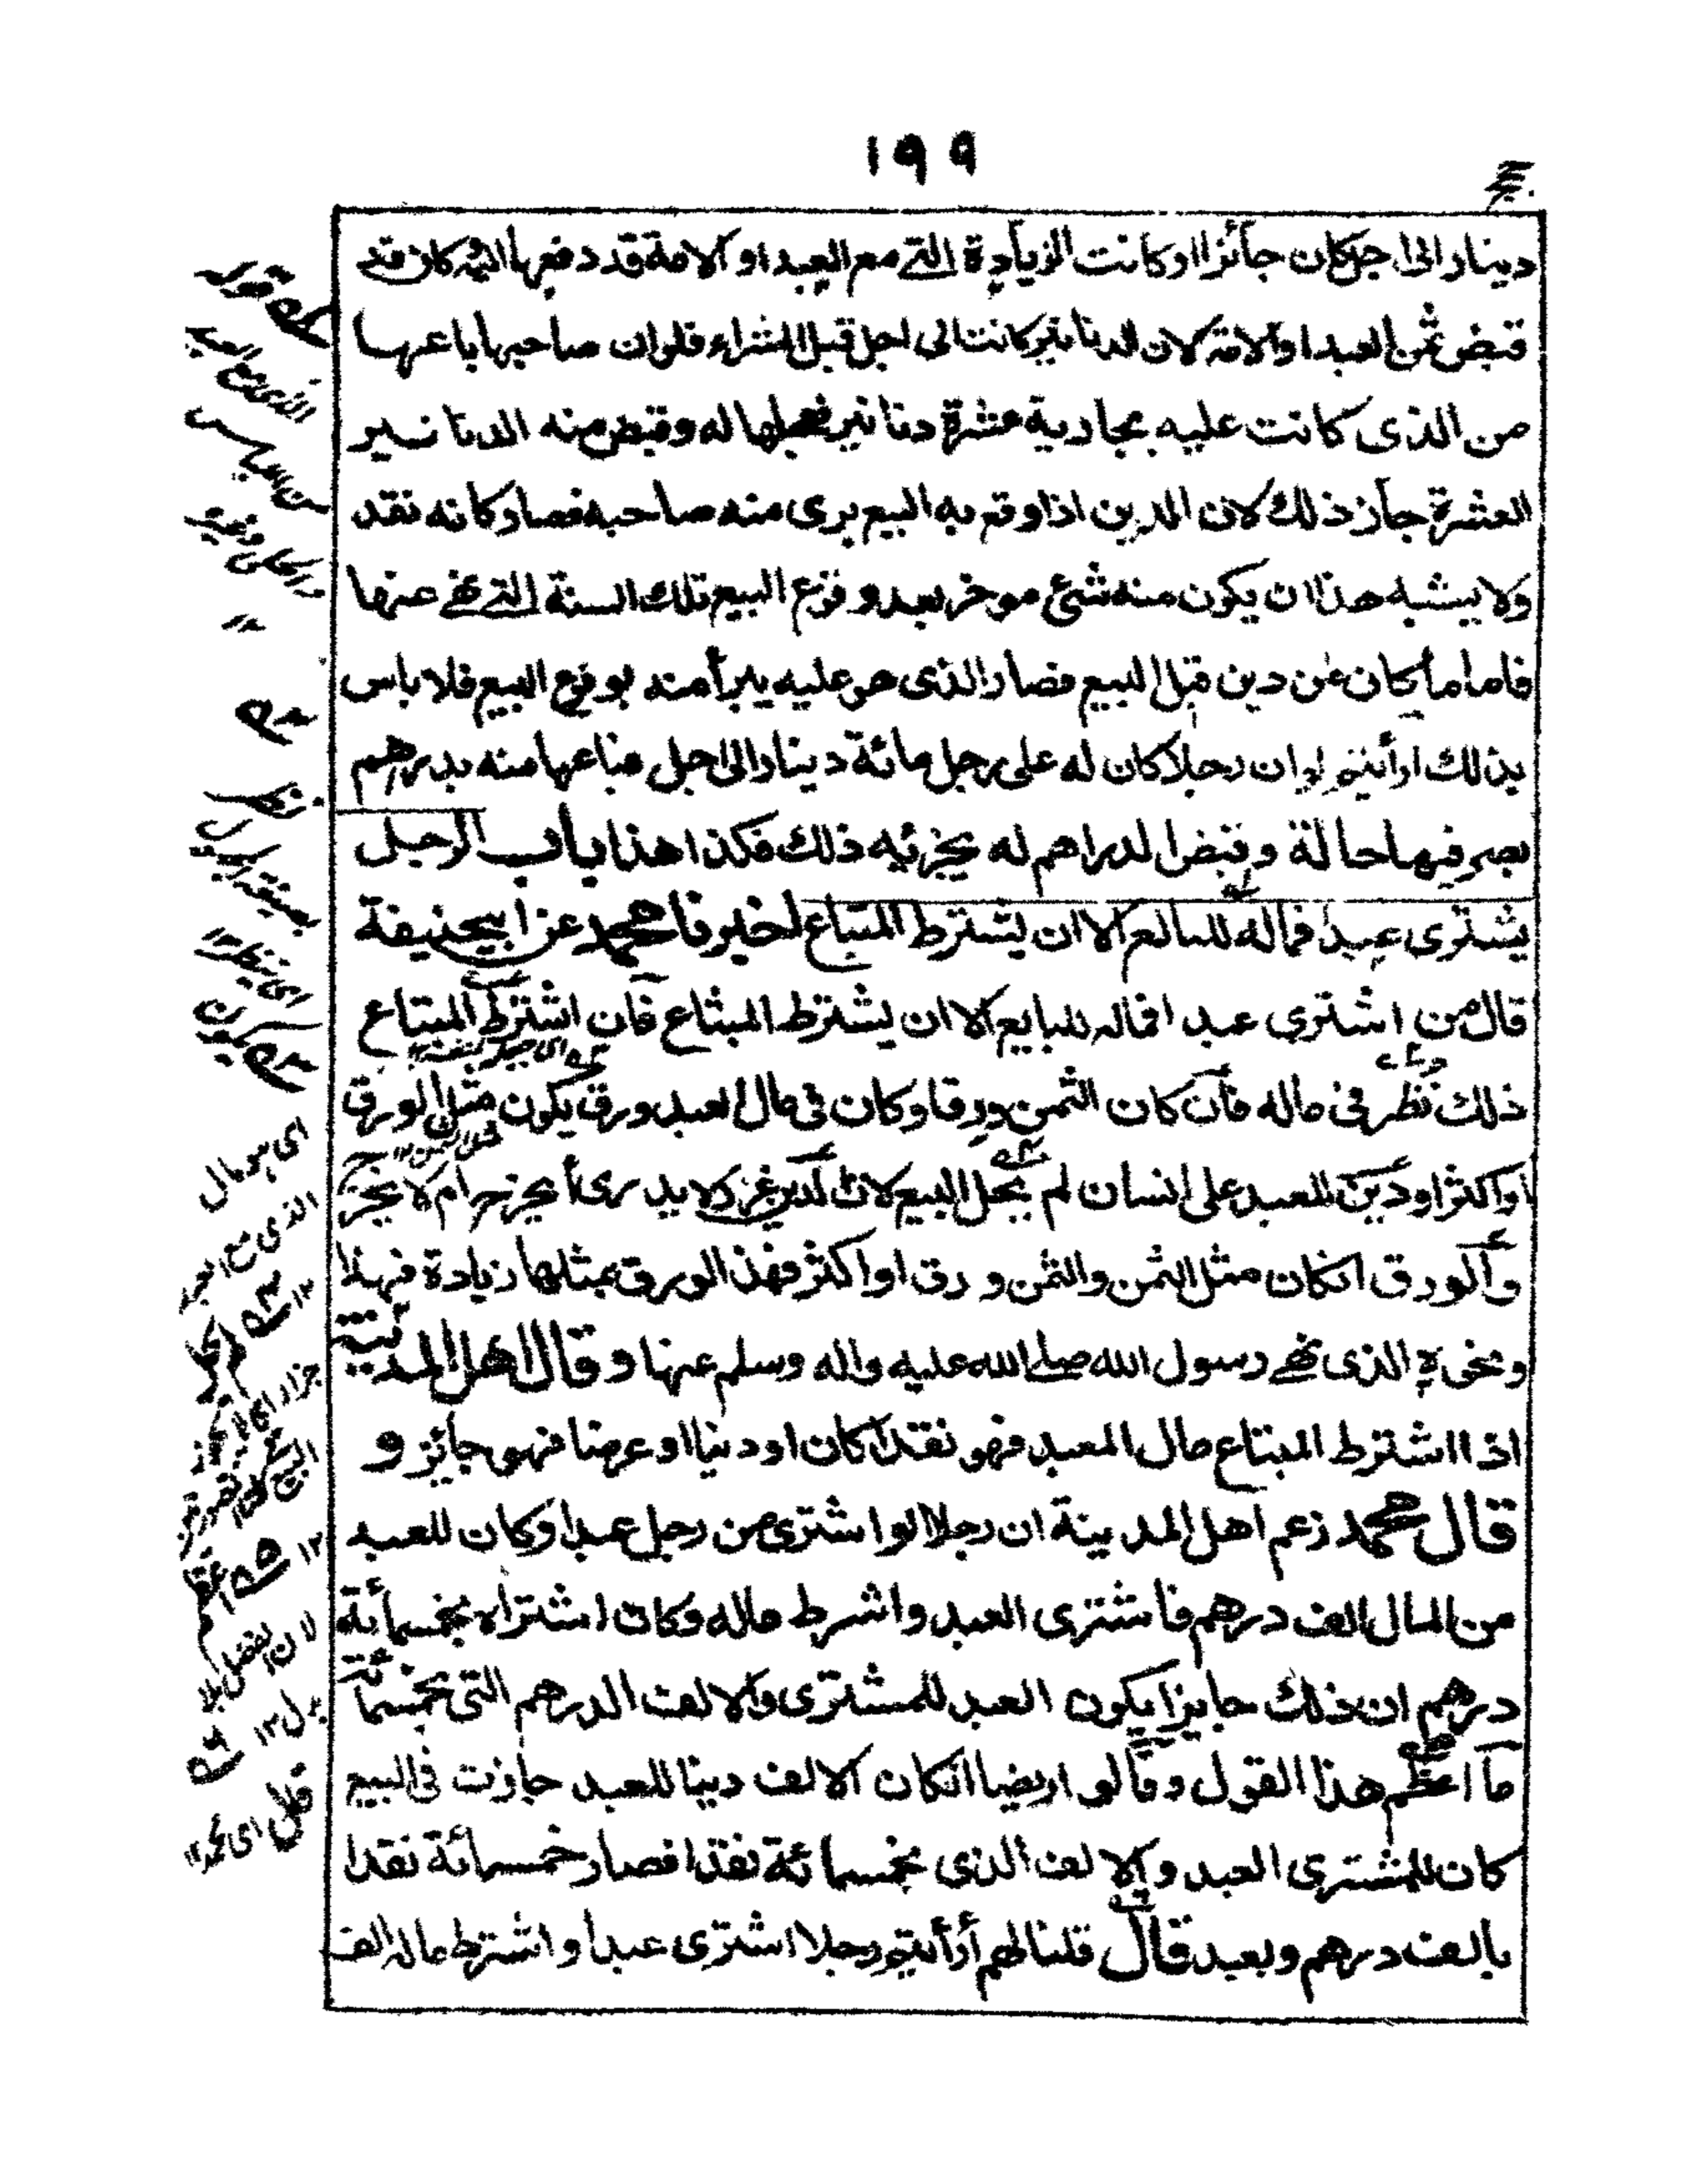 ١٩٩
دينار الى اجل كان جائزا او كانت الزيادة التے مع العبد او الامة قد دفعها اليه كان قد
قبض ثمن العبد او الامة لان الدنانير كانت الى اجل قبل الشراء فلو ان صاحبها باعها
من الذى كانت عليه بجارية عشرة دنانير فعجلها له وقبض منه الدنانير
العشرة جاز ذلك لان الدين اذا وقع به البيع برى منه صاحبه فصار كانه نقد
ولا يشبه هذا ان يكون منه شئ موخر بعد وقوع البيع تلك السنة التے نهى عنها
فاما ما كان من دين قبل البيع فصار الذى هو عليه يبرأ منه بوقوع البيع فلا باس
بذلك ارأيتم لو ان رجلا كان له على رجل مائة دينار الى اجل فباعها منه بدرهم
بصرفها حالة وقبض الدراهم له يجزئيه ذلك فكذا هذا باب الرجل
يشترى عبدا فماله للبائع الا ان يشترط المبتاع اخبرنا محمد عن ابيحنيفة
قال من اشترى عبدا فماله للبايع الا ان يشترط المبتاع فان اشترط المبتاع
ذلك نظر فى ماله فان كان الثمن ورقا وكان فى مال العبد ورق يكون مثل الورق
او اكثر او دين للعبد على انسان لم يحل البيع لان الدين غرر لا يدرى أ يخرج ام لا يخرج
والورق انكان مثل الثمن والثمن ورق او اكثر فهذا الورق بمثلها زيادة فهذا
ونحوه الذى نهے رسول الله صلے الله عليه واله وسلم عنها وقال اهل المدينة
اذا اشترط المبتاع مال العبد فهو نقدا كان او دينا او عرضا فهو جائز و
قال محمد زعم اهل المدينة ان رجلا لو اشترى من رجل عبدا وكان للعبد
من المال الف درهم فاشترى العبد واشرط ماله وكان اشتراه بخمسمأية
درهم ان ذلك جايز ايكون العبد للمشترى والالف الدرهم التى بخمسمائة
ما اعظم هذا القول وقالو ارايضا انكان الالف دينا للعبد جازت فى البيع
كان للمشترى العبد والالف الذى بخمسمائة نقدا فصار خمسمائة نقدا
بالف درهم وبعبد قال قلنا لهم أرأيتم رجلا اشترى عبدا واشترط ماله الف
اى هو مال
الذى مع العبد
لان الفضل بلا
بدل ١٢
قلل اى محمد ١٢